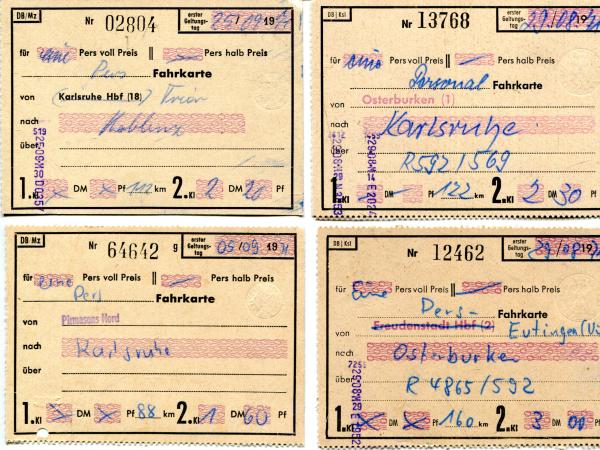 DB/Mz Nr 02804 erster Geltungs- tag 25/09 19
für eine Pers voll Preis || Pers halb Preis
Pers Fahrkarte
von Karlsruhe Hbf (18) Trier
nach Koblenz
über
1.Kl DM Pf 112 km 2.Kl 2 DM 20 Pf
DB | Ksl Nr 13768 erster Geltungs- tag 29/08 19
für eine Pers voll Preis || Pers halb Preis
Personal Fahrkarte
von Osterburken (1)
nach Karlsruhe
über R592/569
1.Kl DM Pf 122 km 2.Kl 2 DM 30 Pf
DB/Mz Nr 64642 g erster Geltungs- tag 05/09 1971
für eine Pers voll Preis || Pers halb Preis
Pers Fahrkarte
von Pirmasens Nord
nach Karlsruhe
über
1.Kl DM Pf 88 km 2.Kl 1 DM 60 Pf
DB | Ksl Nr 12462 erster Geltungs- tag 29/08
für Eine Pers voll Preis || Pers halb Preis
Pers- Fahrkarte
von Freudenstadt Hbf (2) Eutingen
nach Osterburken
über R 4865/592
1.Kl DM Pf 160 km 2.Kl 3 DM 00 Pf